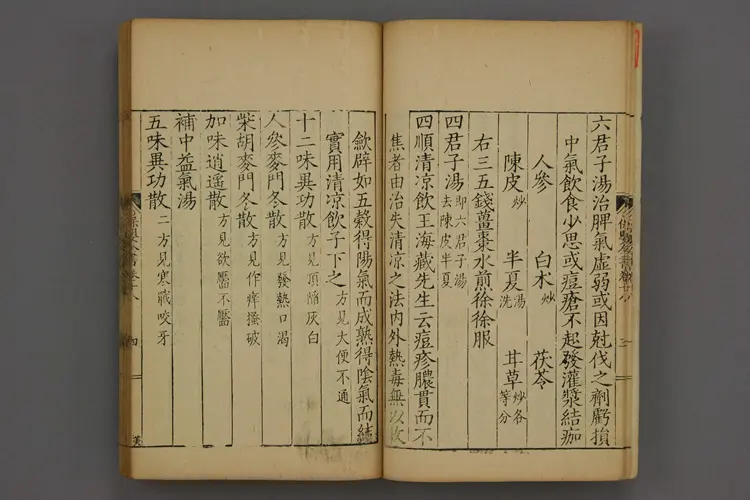 六君子湯治脾氣虛弱或因尅伐之劑虧損
中氣飲食少思或痘瘡不起發灌漿結痂
人參 白朮炒 茯苓
陳皮炒 半夏湯洗 甘草炒各等分
右三五錢薑棗水煎徐徐服
四君子湯即六君子湯去陳皮半夏
四順清凉飲王海藏先生云痘疹膿貫而不
焦者由治失清凉之法內外熱毒無以收
歛辟如五穀得陽氣而成熟得陰氣而結
實用清凉飲子下之方見大便不通
十二味異功散方見頂陷灰白
人參麥門冬散方見發熱口渴
柴胡麥門冬散方見作痒搔破
加味逍遙散方見欲靨不靨
補中益氣湯
五味異功散二方見寒戰咬牙
四